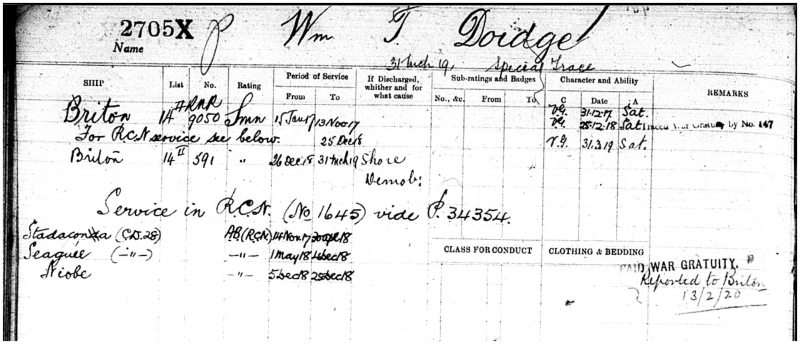 2705X P Wm T Doidge
Name
31 Mch 19 Special Trace
SHIP List No. Rating Period of Service If Discharged, whither and for what cause Sub-ratings and Badges Character and Ability REMARKS
From To No., &c. From To C. Date A
Briton 14 II RNR 9050 Smn 15 Jan 17 13 Nov 17 V.G. 31.12.17 Sat.
For R.C.N. service see below. 25 Dec 18 V.G. 25.12.18 Sat. War Gratuity by No. 147
Briton 14 II 591 " 26 Dec 18 31 Mch 19 Shore V.G. 31.3.19 Sat.
Demob:
Service in R.C.N. (No 1645) vide P. 34354.
Stadacona (C.D. 28) AB (RCN) 14 Nov. 17 30 Apl 18
Seagull (-"-) -"- 1 May 18 4 Dec 18
Niobe -"- 5 Dec 18 25 Dec 18
CLASS FOR CONDUCT CLOTHING & BEDDING
PAID WAR GRATUITY.
Reported to Briton
13/2/20